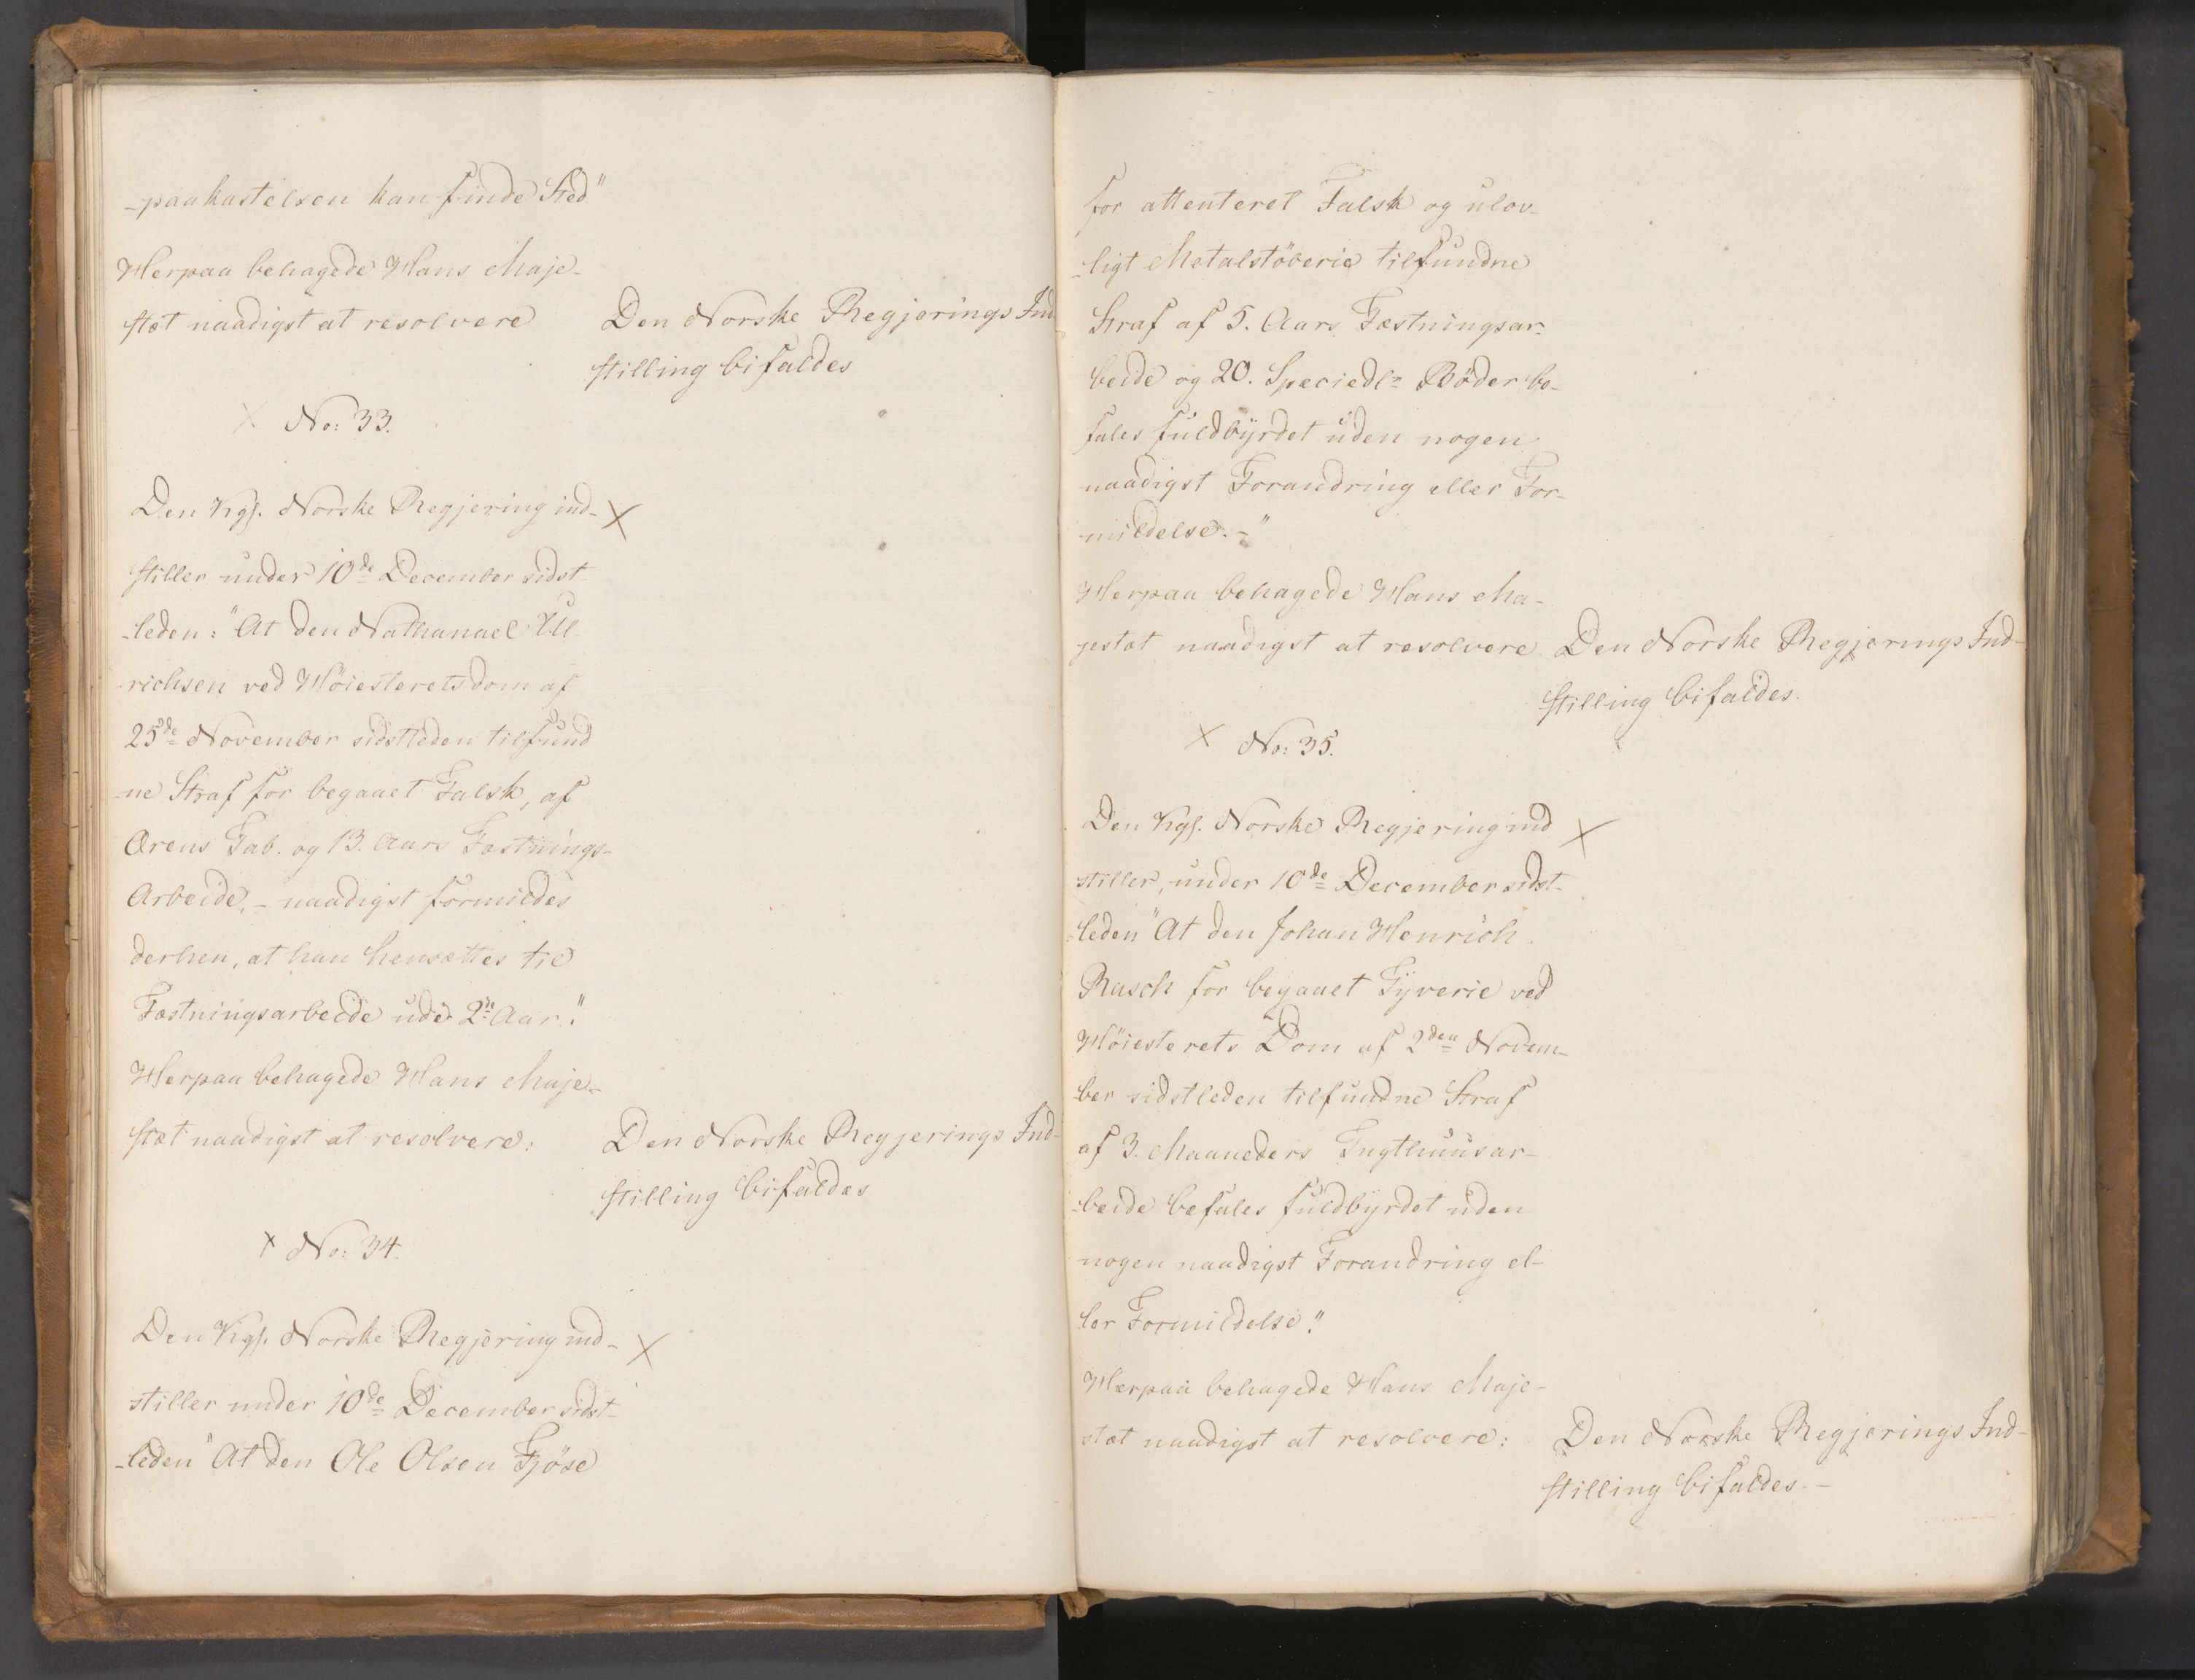 -paakastelsen kan finde Sted"
Herpaa behagede Hans Maje-
stæt naadigst at resolvere
Den Norske Regjerings Ind
stilling bifaldes
× No: 33.
Den Kgl. Norske Regjering ind- ×
stiller under 10de December sidst
-leden: "At den Nathanael Ul
richsen ved Höiesteretsdom af
25de November sidstleden tilfund
-ne Straf for begaaet Falsk, af
Ærens Tab. og 13. Aars Fæstnings-
Arbeide, - naadigst formildes
derhen, at han hensættes til
Fæstningsarbeide udi 2de Aar."
Herpaa behagede Hans Maje-
stæt naadigst at resolvere:
Den Norske Regjerings Ind-
stilling bifaldes
× No: 34.
Den Kgl. Norske Regjering ind- ×
stiller under 10de December sidst-
-leden "At den Ole Olsen Fjöse
for attenteret Falsk og ulov-
-ligt Metalstöberie tilfundne
Straf af 5. Aars Fæstningsar-
beide og 20. Speciedlr Böder be-
fales fuldbyrdet uden nogen
naadigst Forandring eller For-
mildelse.-"
Herpaa behagede Hans Ma-
jestæt naadigst at resolvere
Den Norske Regjerings Ind-
stilling bifaldes.
× No: 35.
Den Kgl. Norske Regjering ind ×
stiller, under 10de December sidst-
-leden "At den Johan Henrich
Rasch for begaaet Tyverie ved
Höiesterets Dom af 2den Novem-
-ber sidstleden tilfundne Straf
af 3. Maaneders Tugthuusar-
-beide befales fuldbyrdet uden
nogen naadigst Forandring el-
ler Formildelse."
Herpaa behagede Hans Maje-
stæt naadigst at resolvere:
Den Norske Regjerings Ind-
stilling bifaldes.-